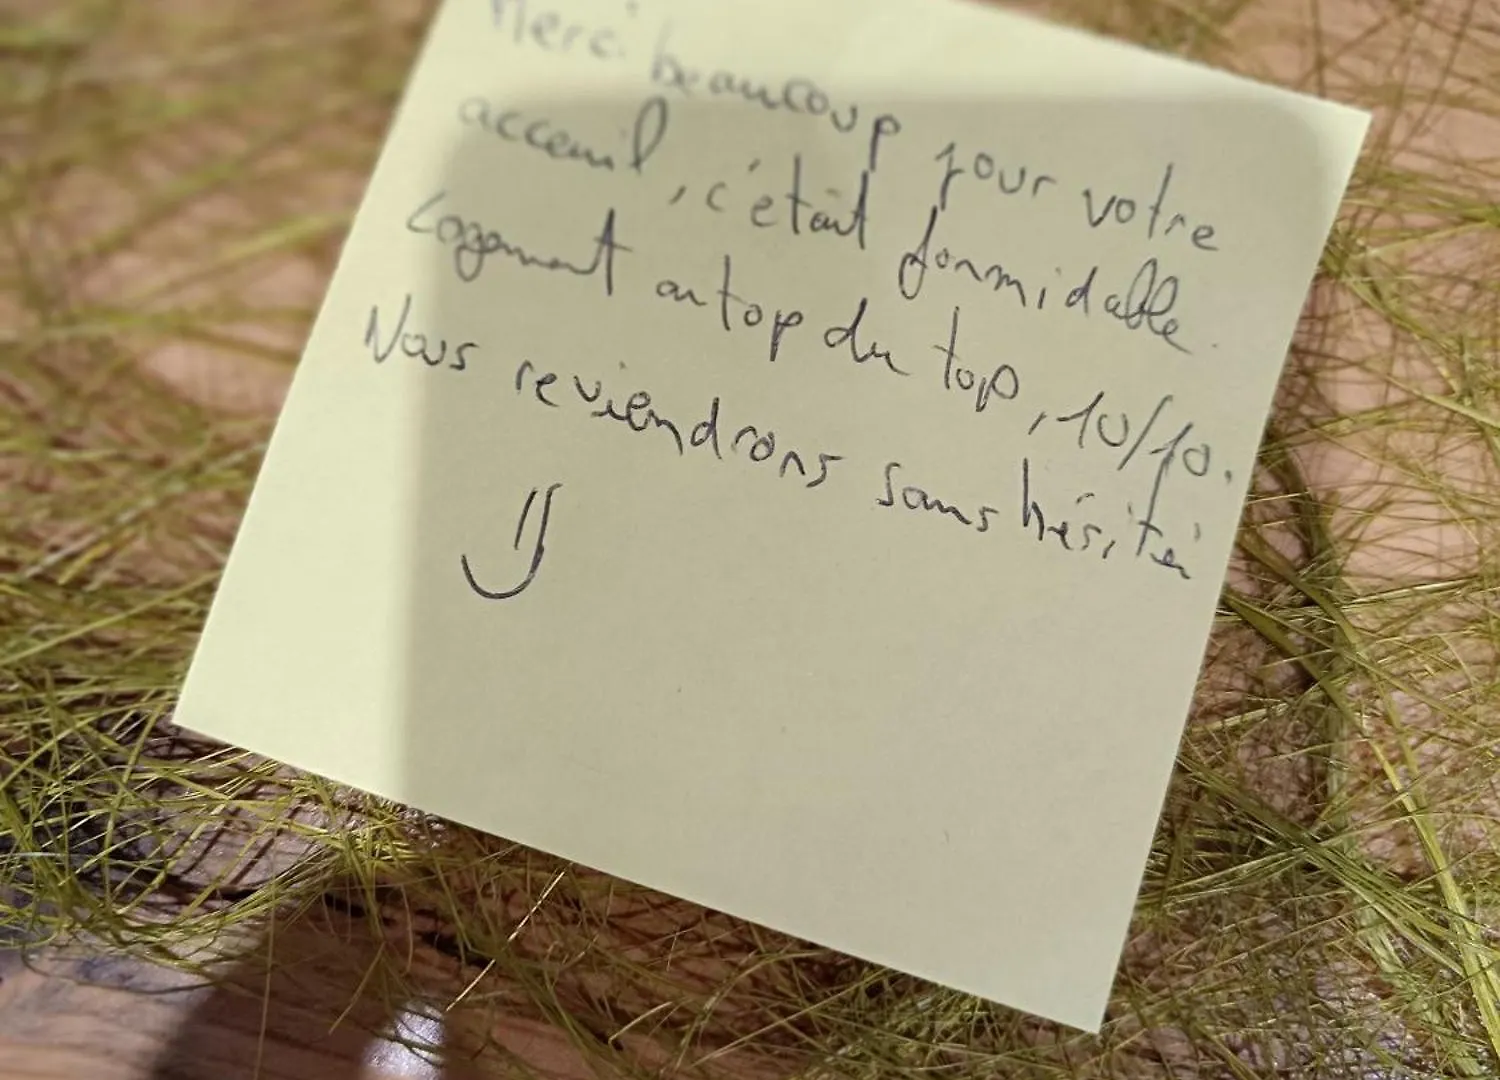 Merci beaucoup pour votre
acceuil, c'était formidable.
Logement au top du top, 10/10.
Nous reviendrons sans hésiter